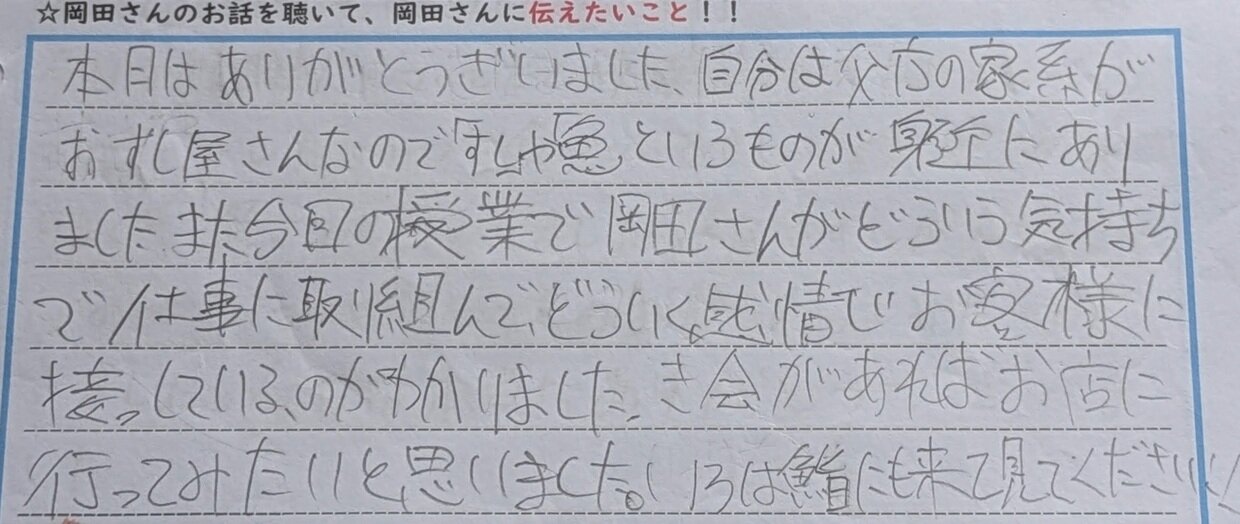 ☆岡田さんのお話を聴いて、岡田さんに伝えたいこと！！
本日はありがとうございました、自分は父方の家系が
おすし屋さんなので「すし」や「魚」というものが身近にあり
ましたまた今回の授業で岡田さんがどういう気持ち
で仕事に取り組んで、どういう感情でお客様に
接っしているのがわかりました。き会があればお店に
行ってみたいと思いました。いろは鮨にも来て見てください！